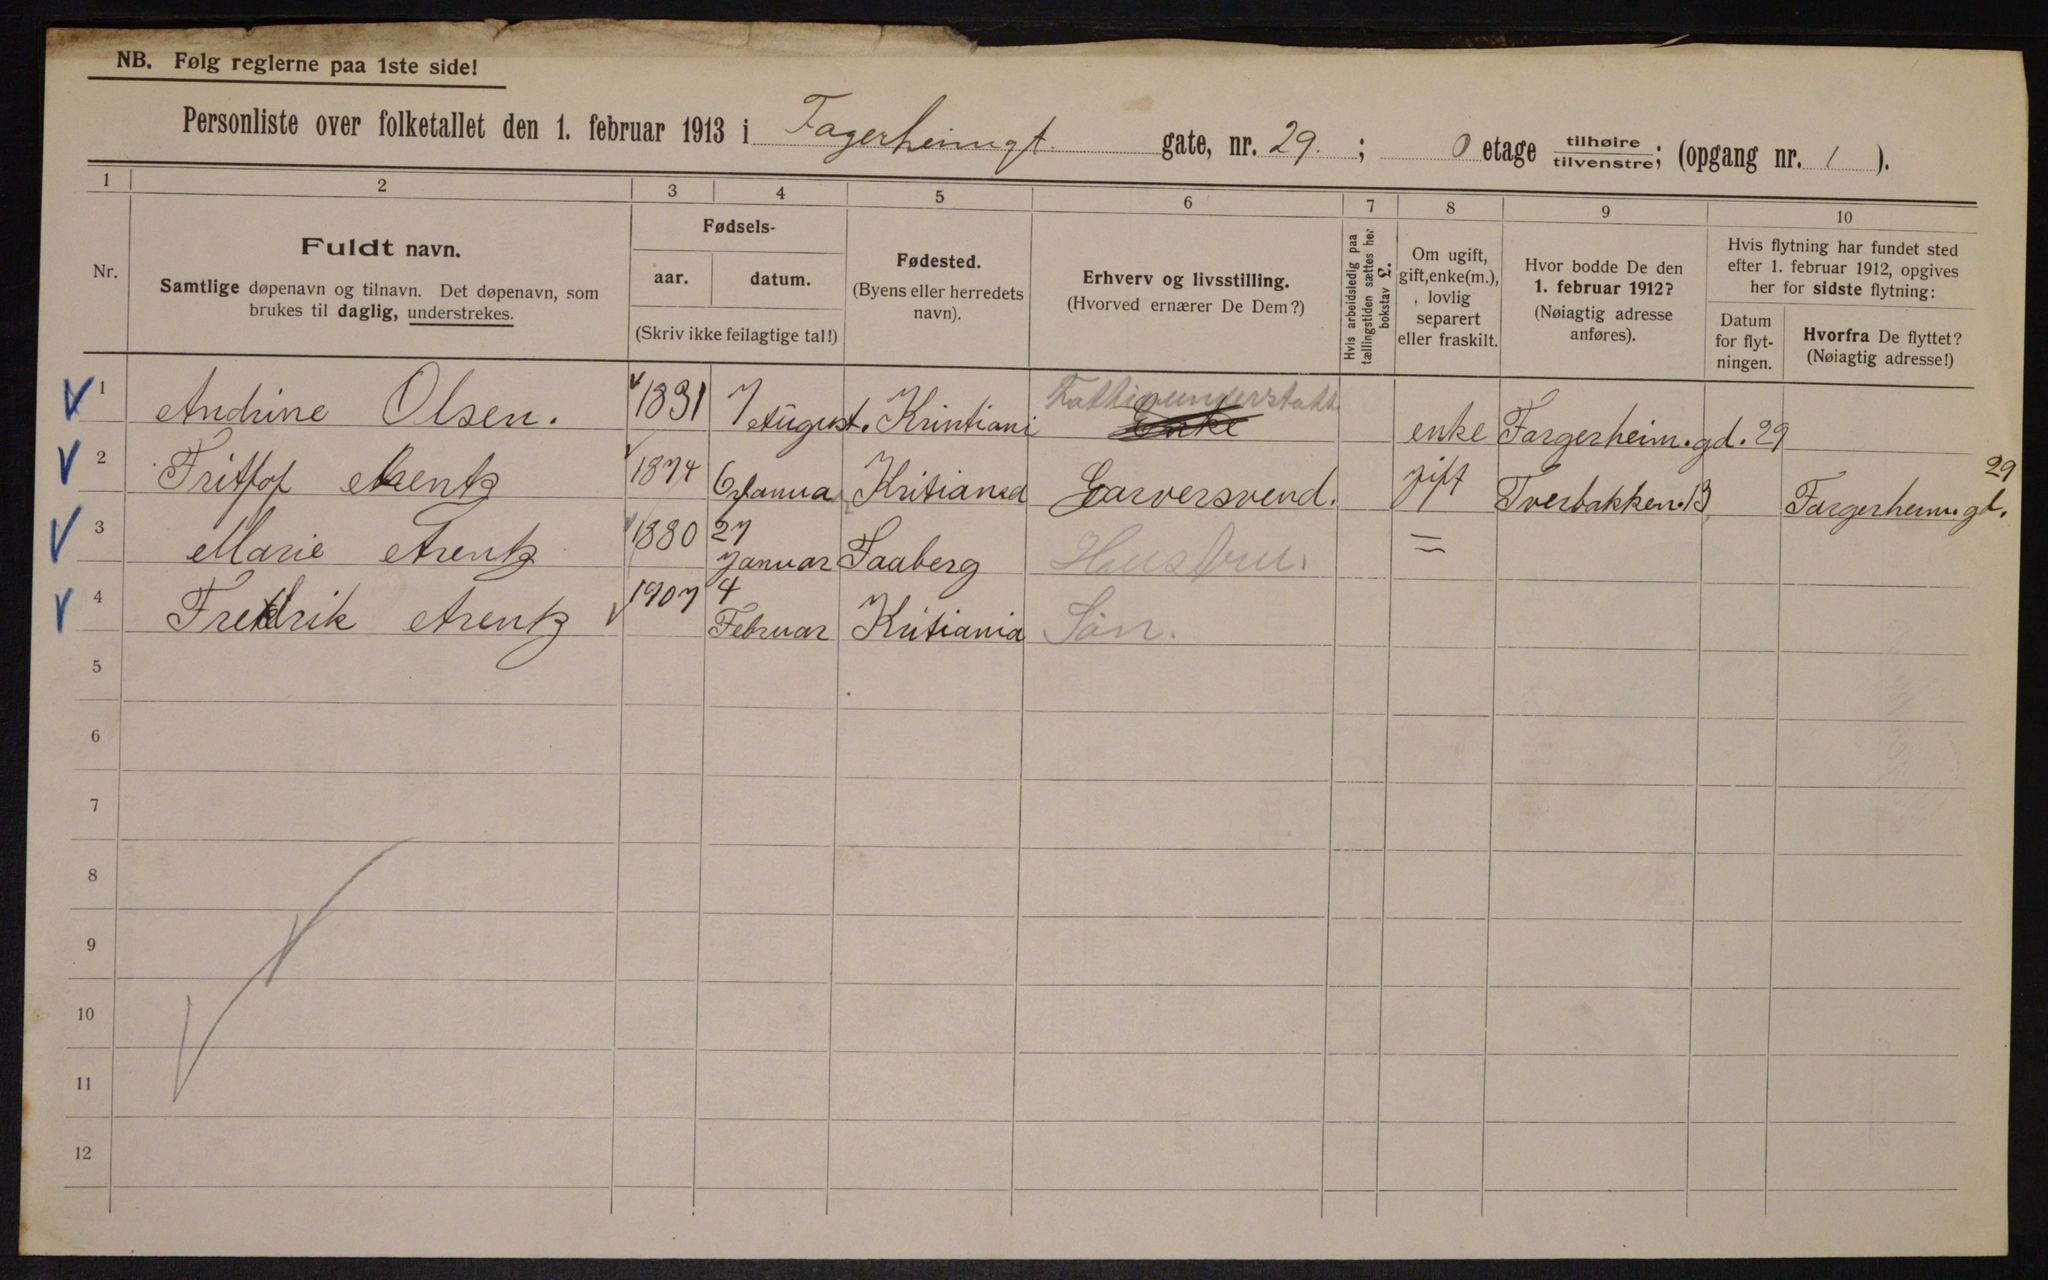 NB. Følg reglerne paa 1ste side!
Personliste over folketallet den 1. februar 1913 i Fagerheimgt. gate, nr. 29. ; 0 etage tilhøire/tilvenstre; (opgang nr. 1 ).
1 2 3 4 5 6 7 8 9 10
Nr.
Fuldt navn.
Samtlige døpenavn og tilnavn. Det døpenavn, som
brukes til daglig, understrekes.
Fødsels-
aar. datum.
(Skriv ikke feilagtige tal!)
Fødested.
(Byens eller herredets
navn).
Erhverv og livsstilling.
(Hvorved ernærer De Dem?)
Hvis arbeidsledig paa
tællingstiden sættes her
bokstav L.
Om ugift,
gift, enke(m.),
lovlig
separert
eller fraskilt.
Hvor bodde De den
1. februar 1912?
(Nøiagtig adresse
anføres).
Hvis flytning har fundet sted
efter 1. februar 1912, opgives
her for sidste flytning:
Datum
for flyt-
ningen.
Hvorfra De flyttet?
(Nøiagtig adresse!)
1 Andrine Olsen. 1831 7 August. Krintiani Enke enke Fargerheim.gd. 29
2 Fritjof Arentz 1874 6 Janua Kritiania Garversvend. gift Tverbakken.13 Fargerheim.gd. 29
3 Marie Arentz 1880 27 Januar Faaberg Hustru. =
4 Fredrik Arentz 1907 4 Februar Kritiania Søn.
5
6
7
8
9
10
11
12